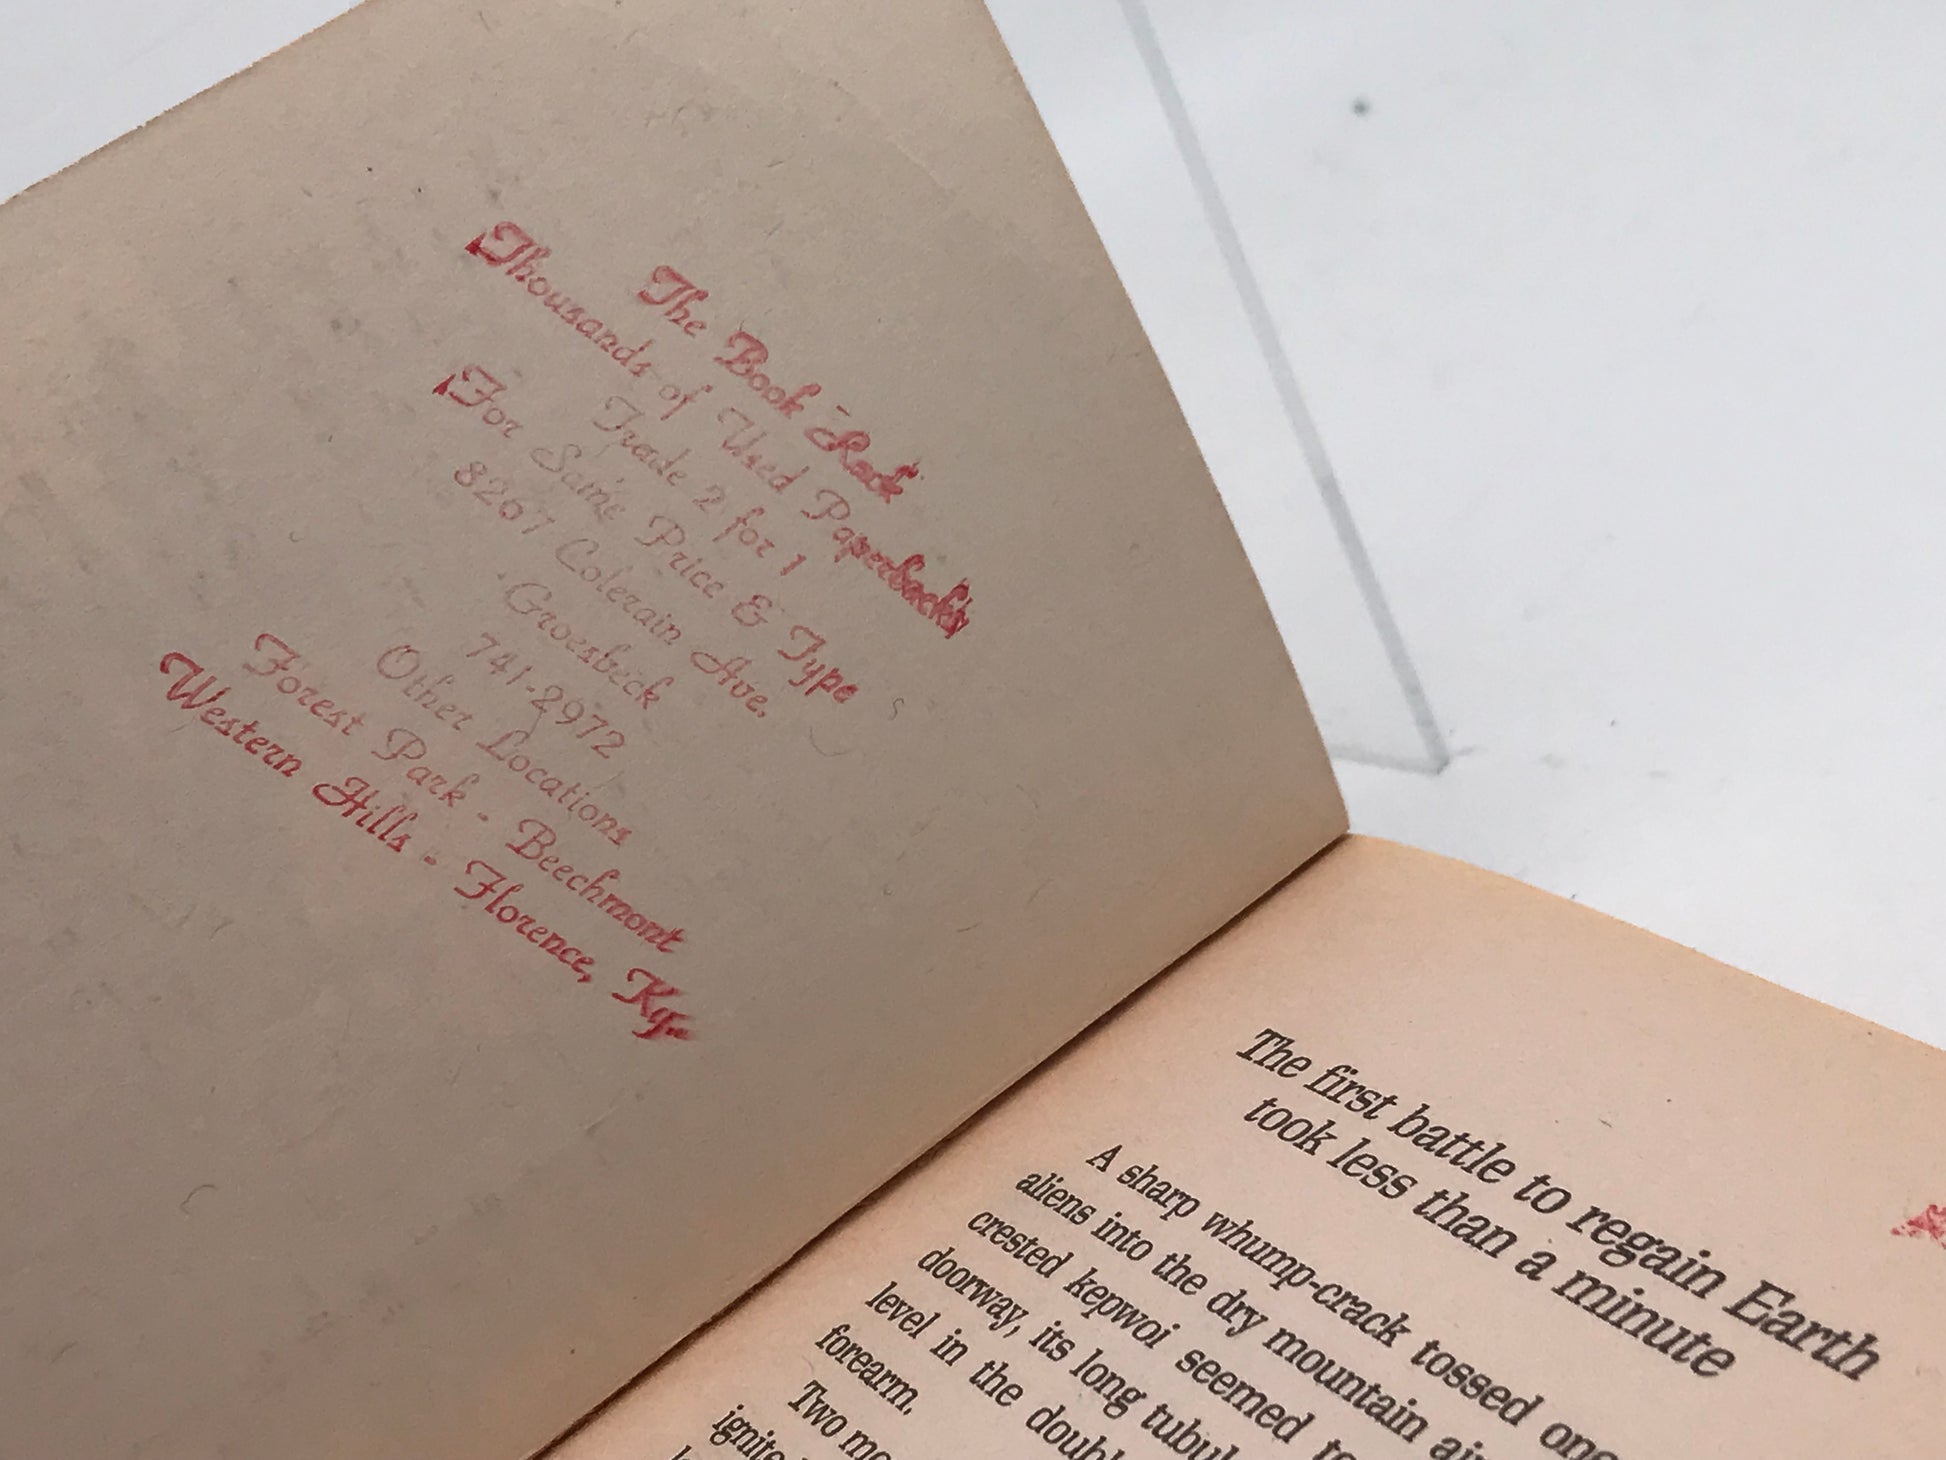 The Book Rack
Thousands of Used Paperbacks
Trade 2 for 1
For Same Price & Type
8267 Colerain Ave.
Groesbeck
741-2972
Other Locations
Forest Park - Beechmont
Western Hills - Florence, Ky.
The first battle to regain Earth
took less than a minute
A sharp whump-crack tossed one
aliens into the dry mountain air
crested kepwoi seemed to
doorway, its long
level in the
forearm.
Two